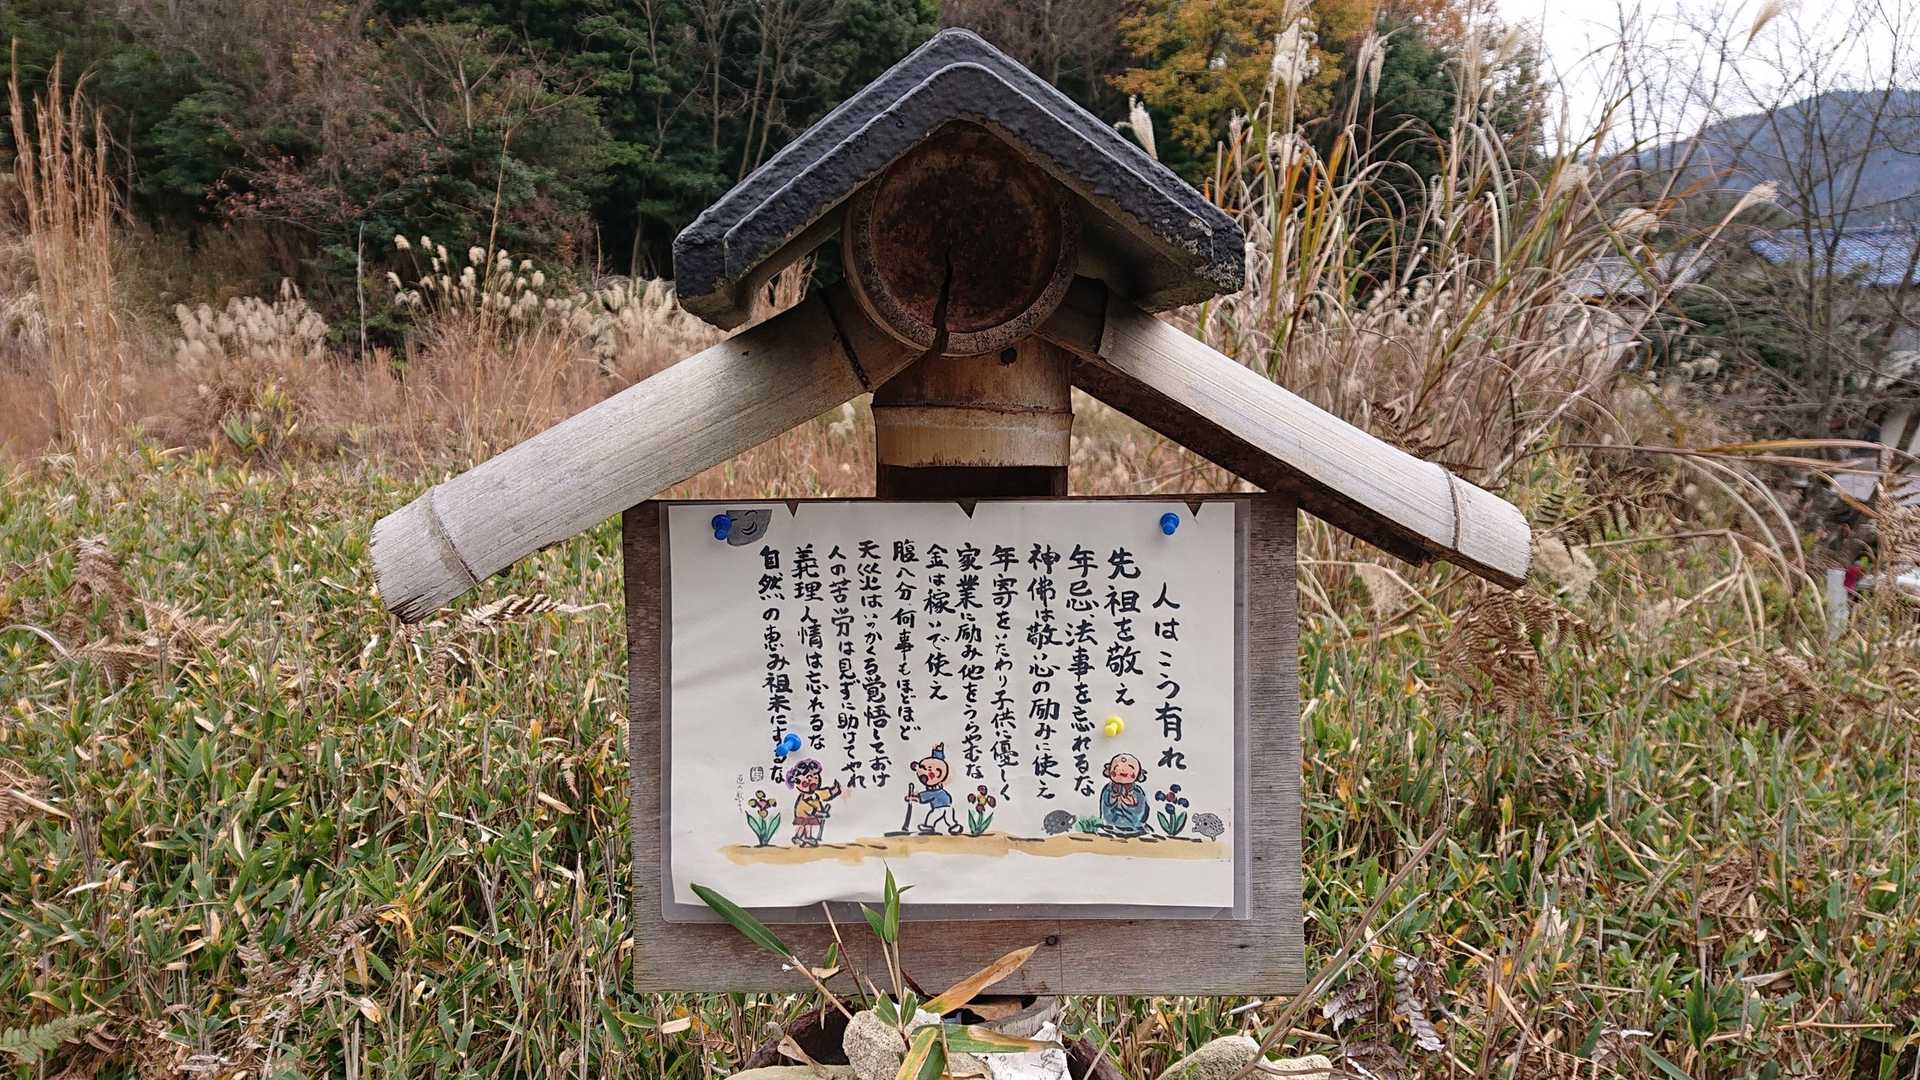 人はこう有れ
先祖を敬え
年忌法事を忘れるな
神佛は敬い心の励みに使え
年寄をいたわり子供に優しく
家業に励み他をうらやむな
金は稼いで使え
腹八分何事もほどほど
天災はいつかくる覚悟しておけ
人の苦労は見ずに助けてやれ
義理人情は忘れるな
自然の恵み祖末にするな